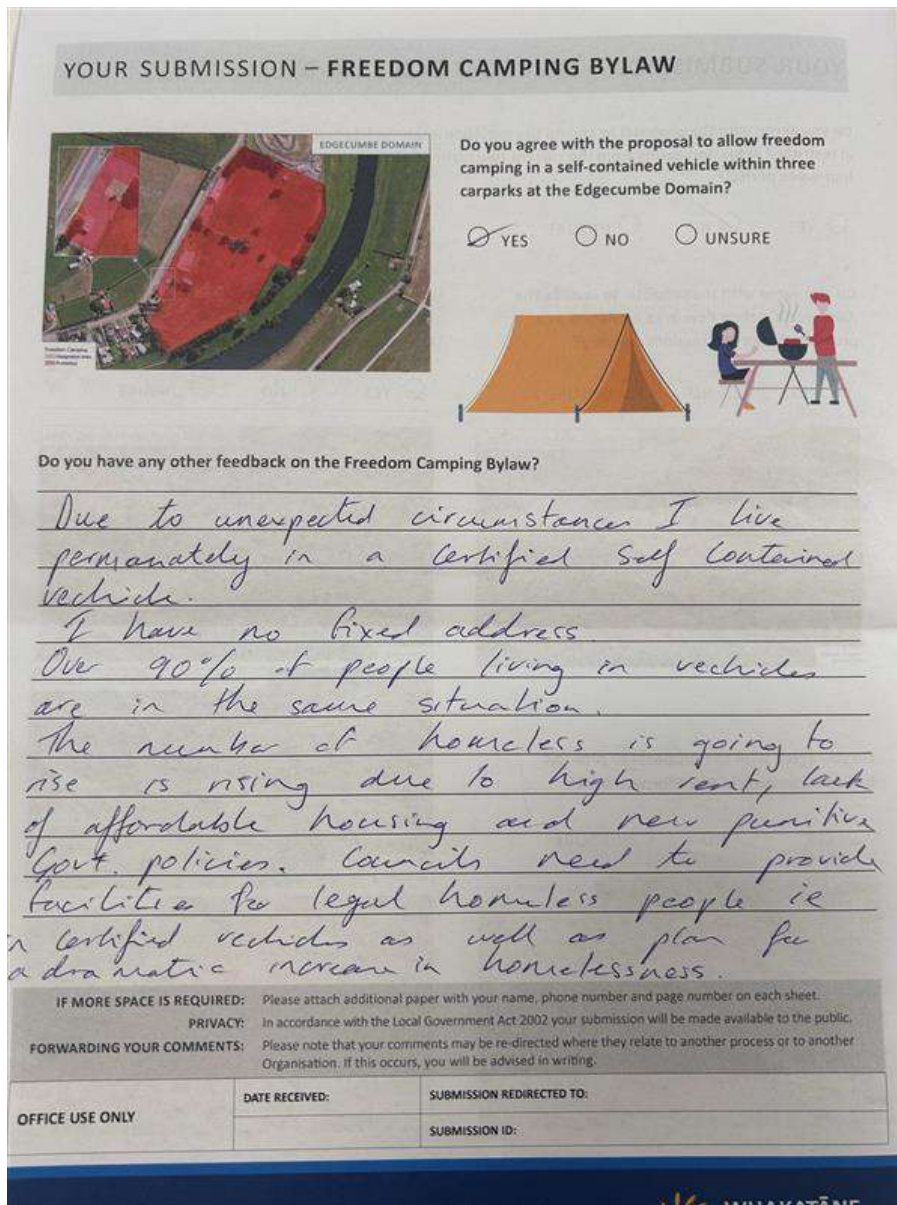 YOUR SUBMISSION – FREEDOM CAMPING BYLAW
EDGECUMBE DOMAIN
Do you agree with the proposal to allow freedom
camping in a self-contained vehicle within three
carparks at the Edgecumbe Domain?
YES NO UNSURE
Freedom Camping
Prohibited
Do you have any other feedback on the Freedom Camping Bylaw?
Due to unexpected circumstances I live
permanately in a Certified Self Contained
vechicle.
I have no fixed address
Over 90% of people living in vechicles
are in the same situation.
The number of homeless is going to
rise is rising due to high rent, lack
of affordable housing and new punitive
Govt. policies. Councils need to provide
facilities for legal homeless people ie
in Certified vechicles as well as plan for
a dramatic increase in homelessness.
IF MORE SPACE IS REQUIRED: Please attach additional paper with your name, phone number and page number on each sheet.
PRIVACY: In accordance with the Local Government Act 2002 your submission will be made available to the public.
FORWARDING YOUR COMMENTS: Please note that your comments may be re-directed where they relate to another process or to another
Organisation. If this occurs, you will be advised in writing.
OFFICE USE ONLY
DATE RECEIVED:
SUBMISSION REDIRECTED TO:
SUBMISSION ID:
WHAKATĀNE